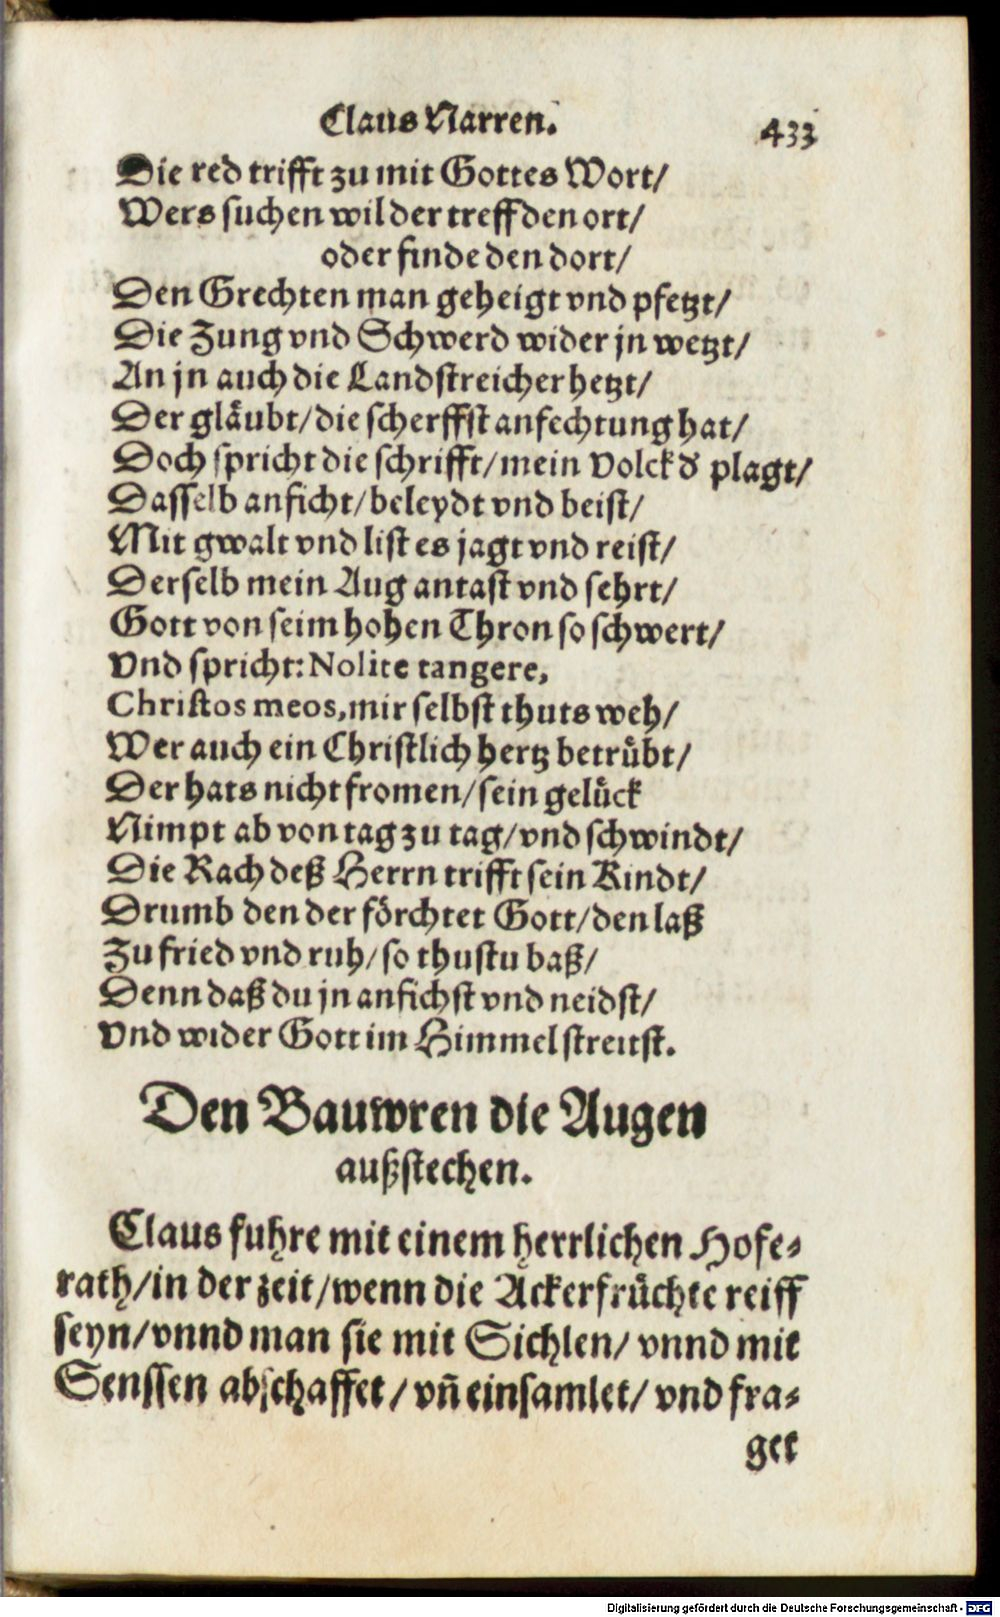 Claus Narren. 433
Die red trifft zu mit Gottes Wort/
Wers suchen wil der treff den ort/
oder finde den dort/
Den Grechten man geheigt vnd pfetzt/
Die Zung vnd Schwerd wider jn wetzt/
An jn auch die Landstreicher hetzt/
Der glaͤubt/die scherffst anfechtung hat/
Doch spricht die schrifft/mein Volck đ plagt/
Dasselb anficht/beleydt vnd beist/
Mit gwalt vnd list es jagt vnd reist/
Derselb mein Aug antast vnd sehrt/
Gott von seim hohen Thron so schwert/
Vnd spricht: Nolite tangere,
Christos meos, mir selbst thuts weh/
Wer auch ein Christlich hertz betruͤbt/
Der hats nicht fromen/sein geluͤck
Nimpt ab von tag zu tag/vnd schwindt/
Die Rach deß Herrn trifft sein Kindt/
Drumb den der foͤrchtet Gott/den laß
Zu fried vnd ruh/so thustu baß/
Denn daß du jn anfichst vnd neidst/
Vnd wider Gott im Himmel streitst.
Den Bauwren die Augen
außstechen.
Claus fuhre mit einem herrlichen Hofe⸗
rath/in der zeit/wenn die Ackerfruͤchte reiff
seyn/vnnd man sie mit Sichlen/vnnd mit
Senssen abschaffet/vñ einsamlet/vnd fra⸗
get
Digitalisierung gefördert durch die Deutsche Forschungsgemeinschaft - DFG